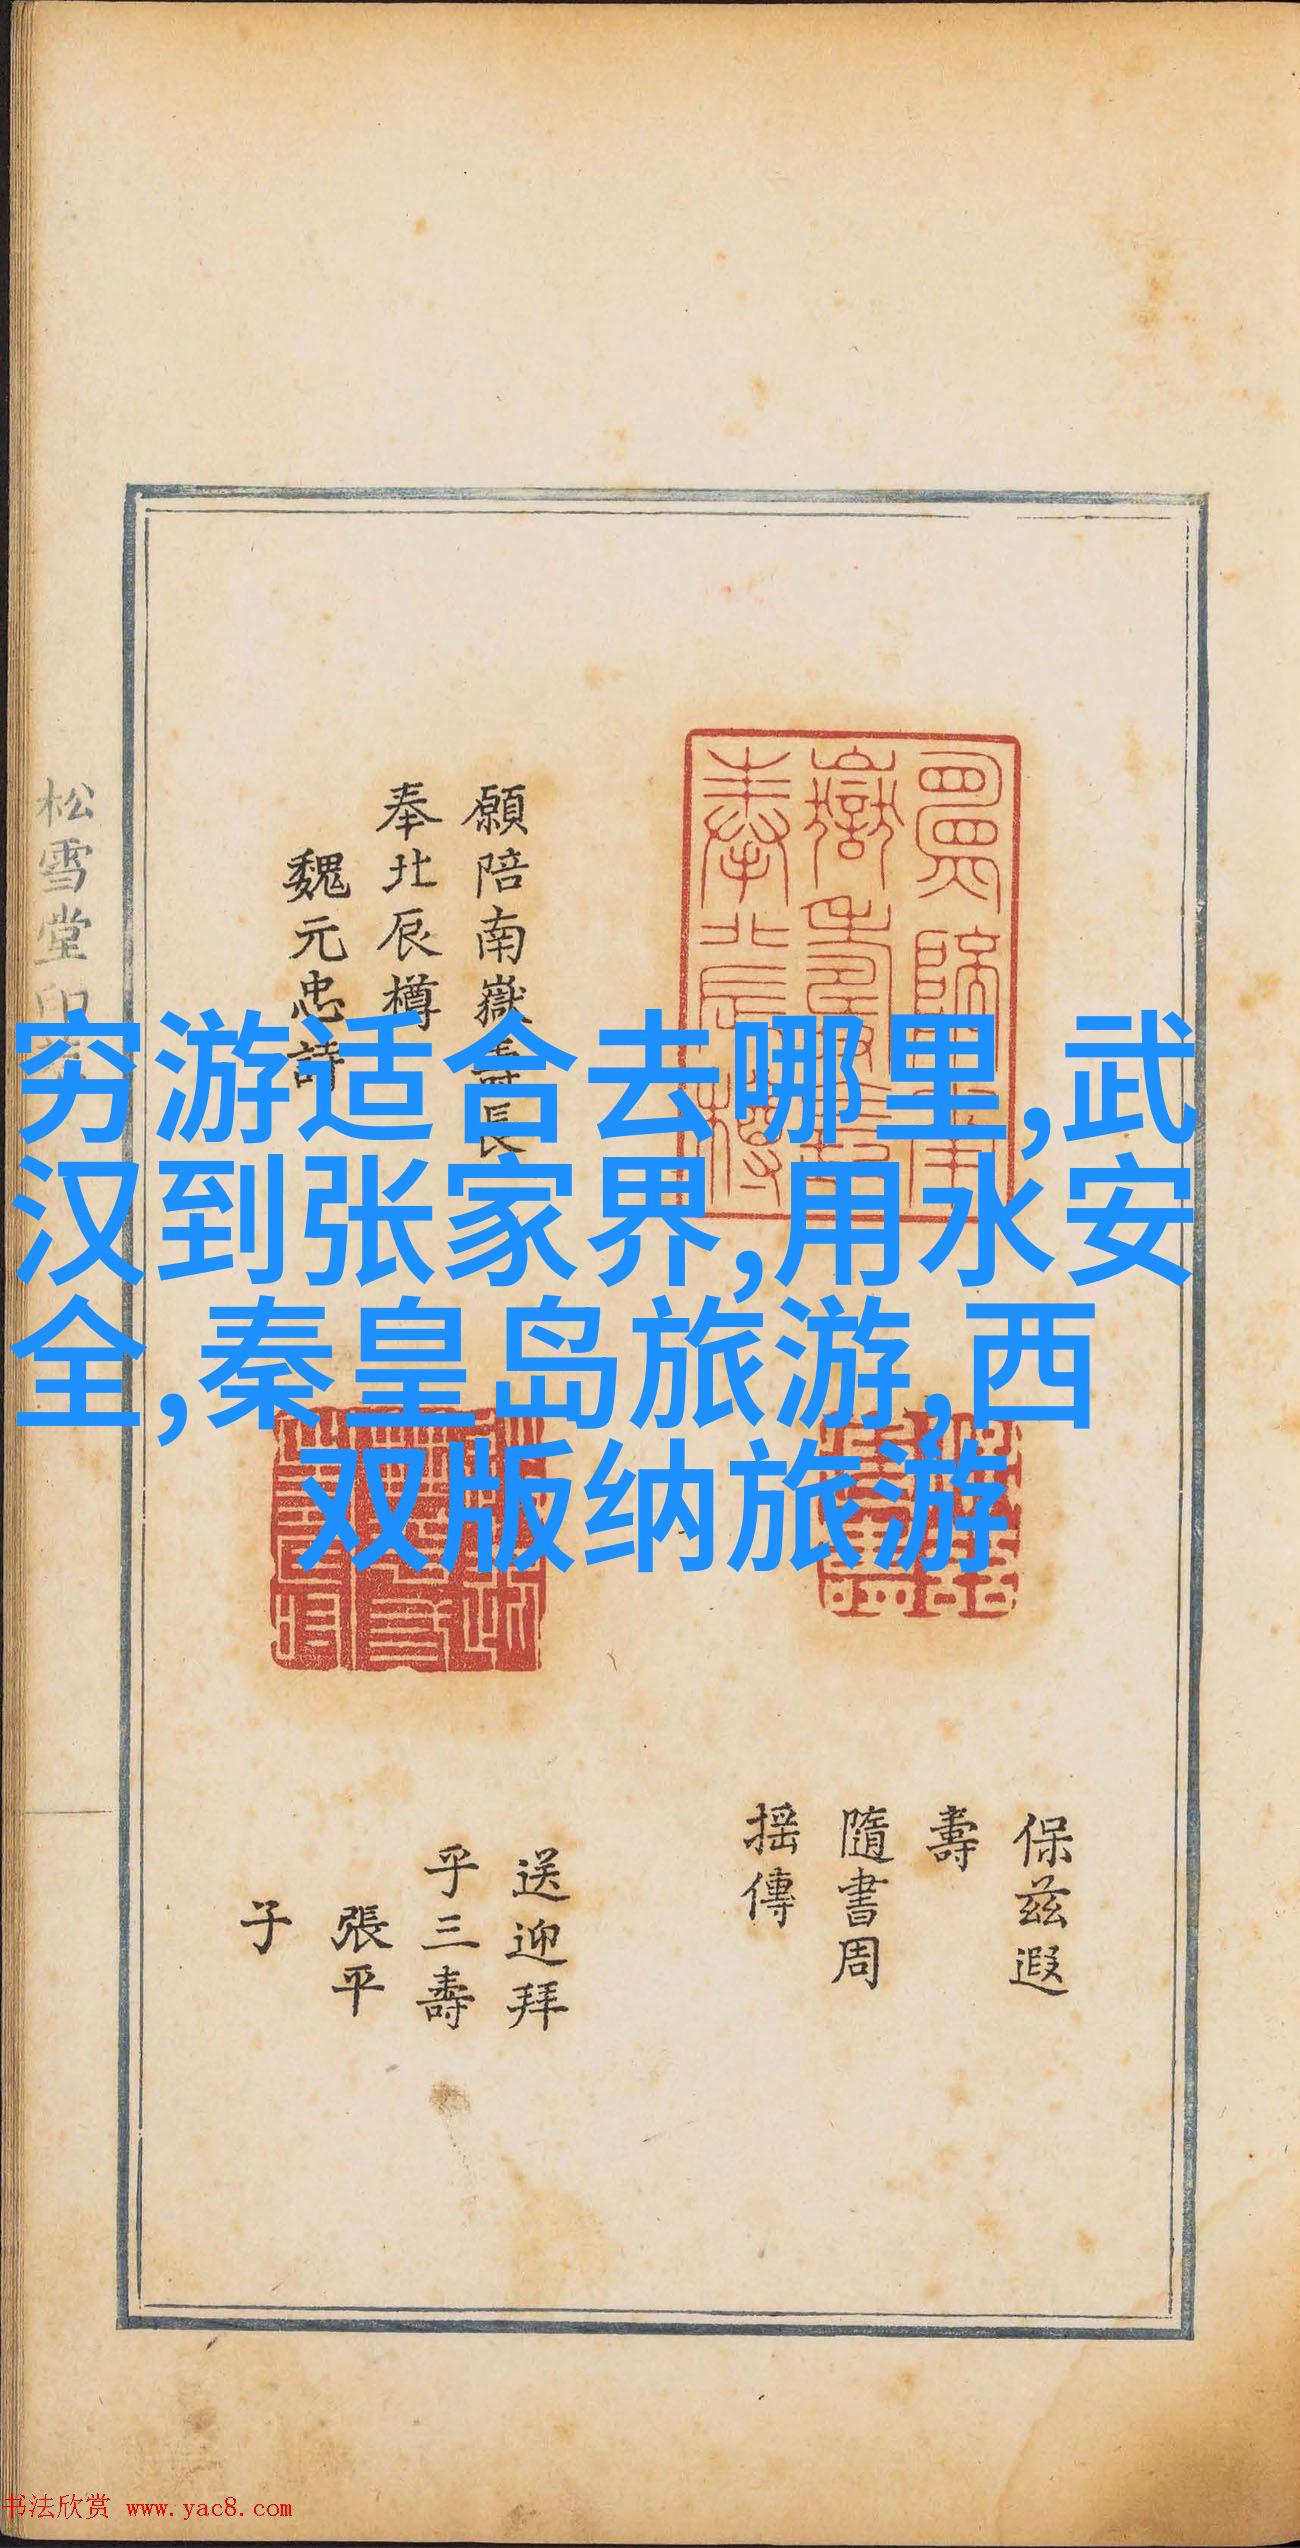 穷游适合去哪里,武
汉到张家界,用水安
全,秦皇岛旅游,西
双版纳旅游
願陪南嶽壽長
奉北辰樽
魏元忠詩
保茲遐
壽
隨書周
搖傳
送迎拜
乎三壽
張平
子
松雪堂印
书法欣赏 www.yac8.com